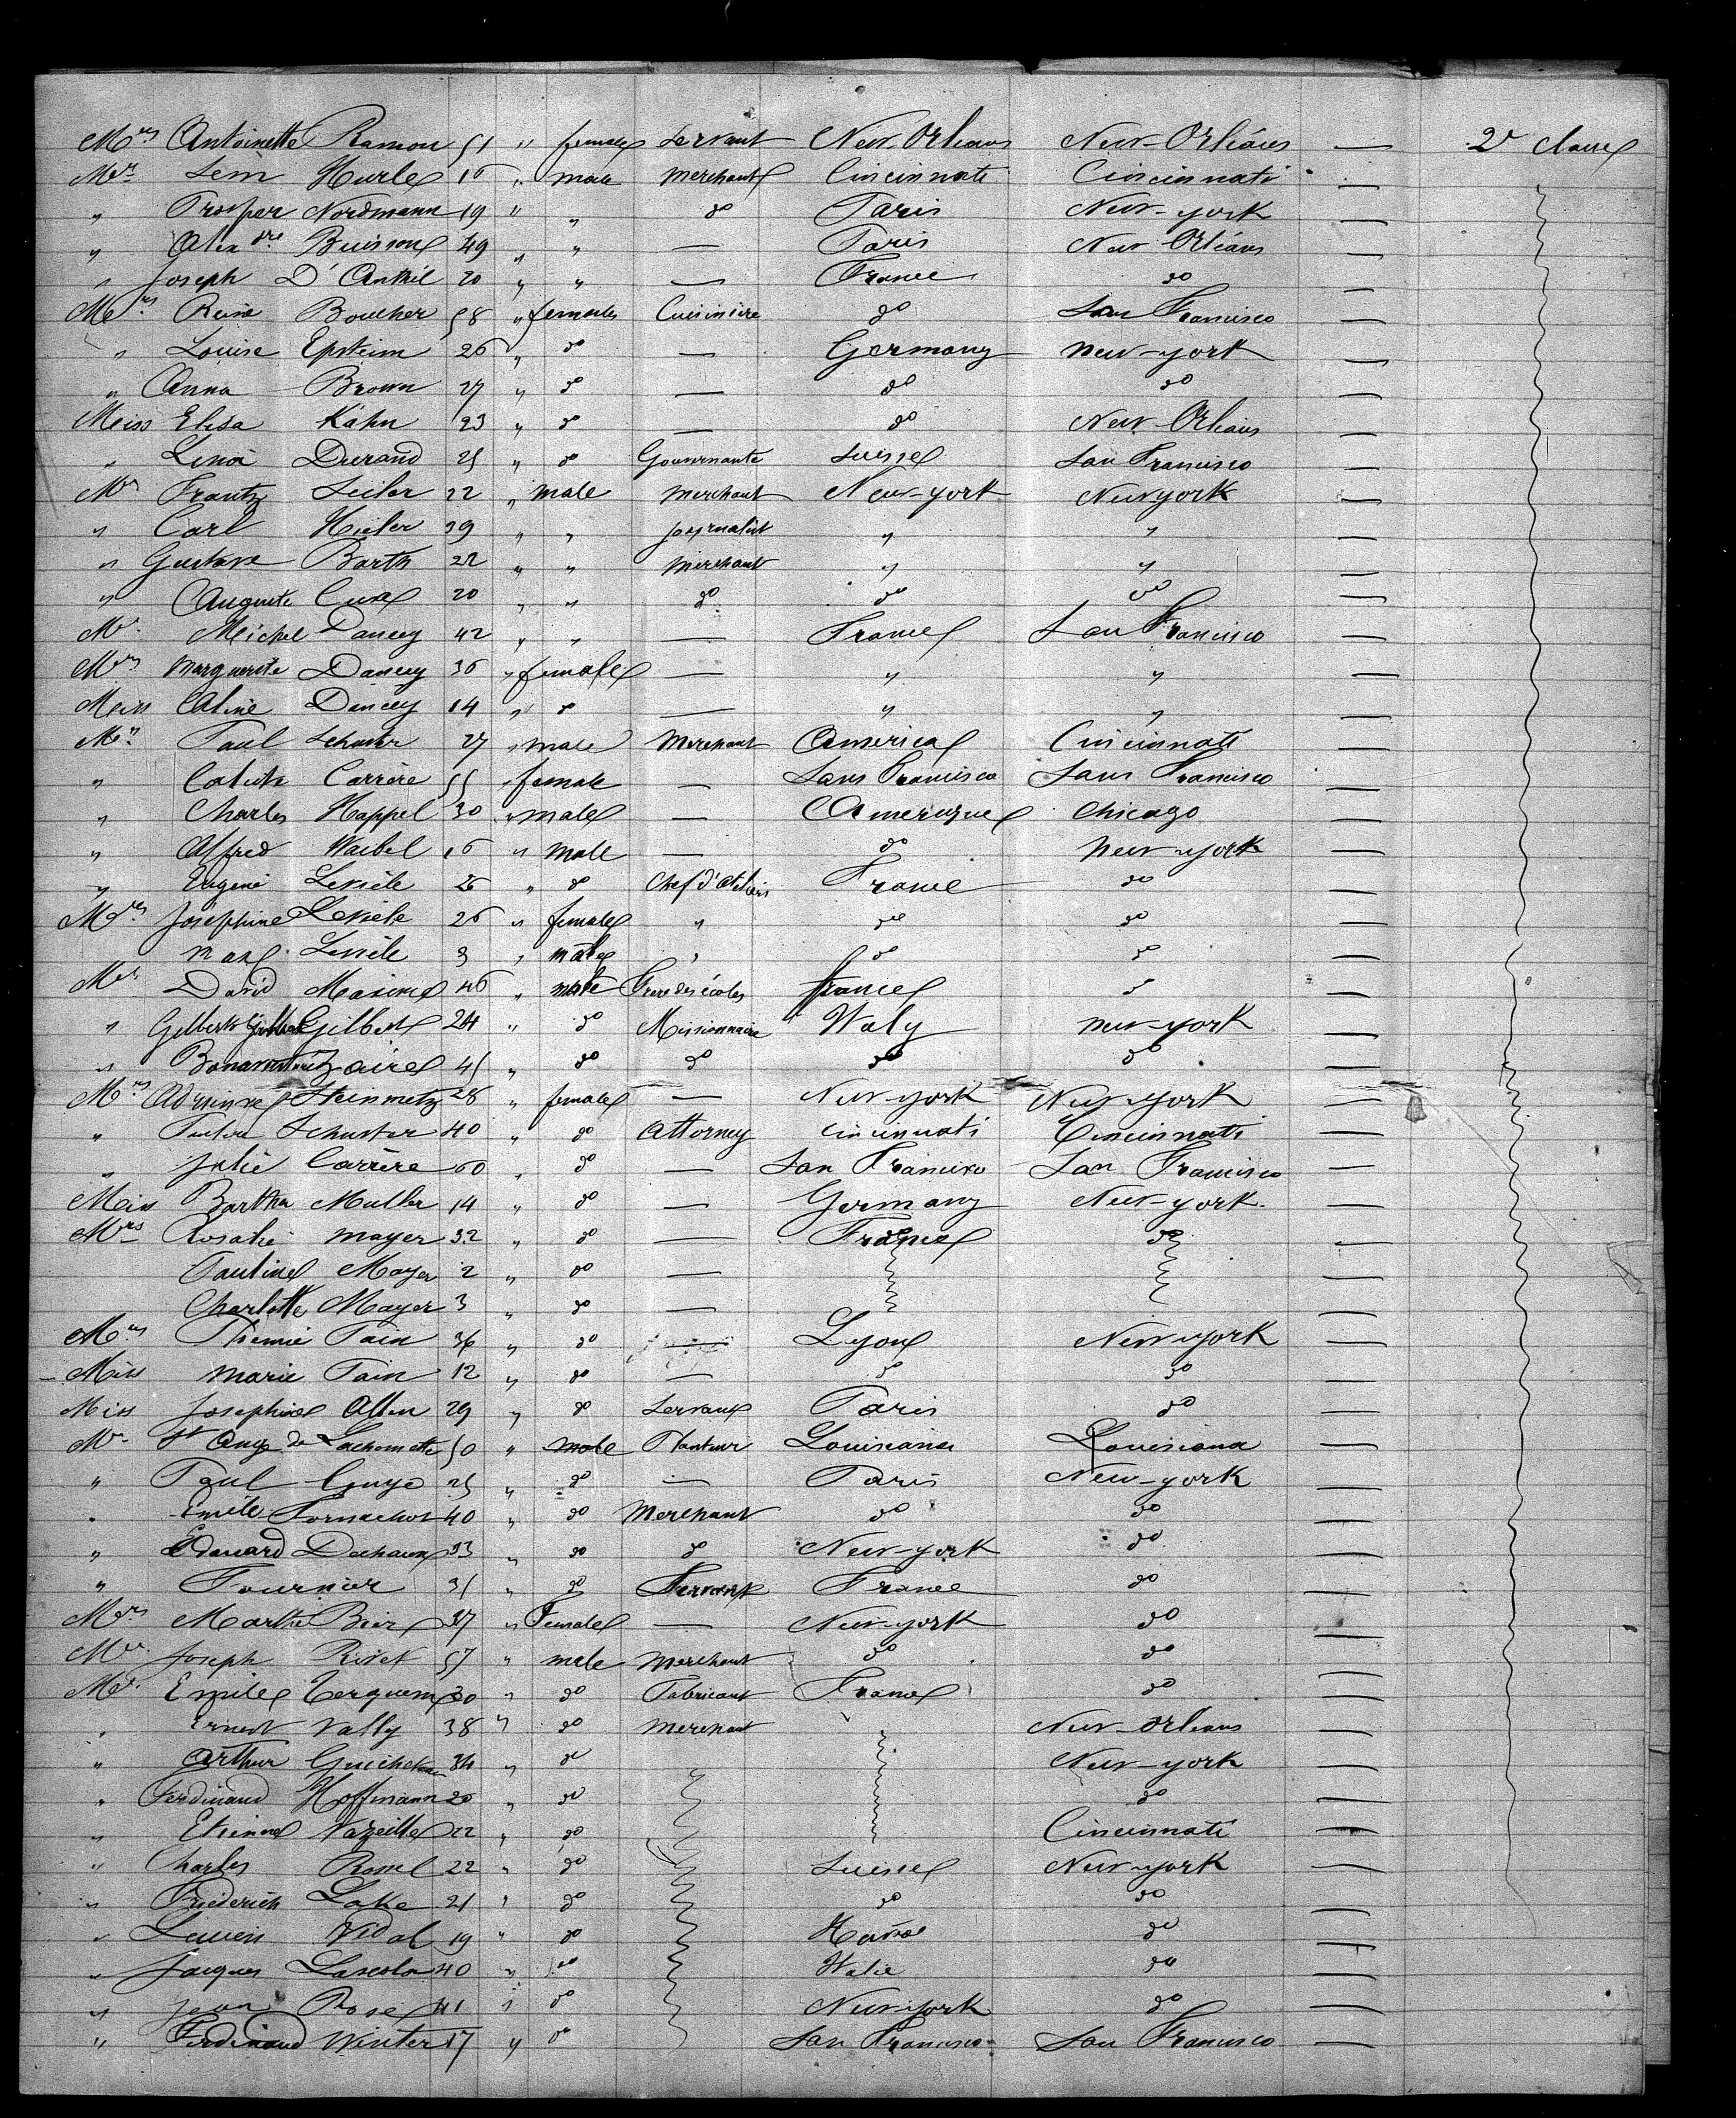 Mrs Antoinette Ramon 51 " female Servant New-Orleans New-Orléans — 2e Classe
Mr Sem Hurle 16 " male Merchant Cincinnati Cincinnati —
" Prosper Nordmann 19 " " do Paris New-york —
" Alexdre Buisson 49 " " — Paris New Orléans —
" Joseph D'Anthil 20 " " — France do —
Mrs Reine Boucher 58 " females Cuisinière do San Francisco —
" Louise Epsteim 26 " do — Germany New-york —
" Anna Brown 27 " do — do do —
Meiss Elisa Kahn 23 " do — do New-Orleans —
" Lina Durand 25 " do Gouvernante Suisse San Francisco —
Mr Frantz Seiler 22 " male merchant New-york New york —
" Carl Hieler 39 " " journalist " " —
" Gustave Barth 22 " " merchant " " —
" Auguste 20 " " do do do —
Mr Michel Dancey 42 " " — France San Francisco —
Mrs Marguerite Dancey 36 " female — " " —
Meiss Aline Dancey 14 " do — " " —
Mr Paul Schuster 27 " male Merchant America Cincinnati —
" Carrère 55 " female — San Francisco San Francisco —
" Charles Happel 30 " male — Amerique Chicago —
" Alfred Waibel 16 " male — do New-york —
" Eugene 26 " do Chef d'ateliers France do —
Mrs Josephine 26 " female " do do —
3 " male " do do —
Mr David Maxime 46 " male Frere des écoles france do —
" Gilbert 24 " do Missionnaire Italy new-york —
" 45 " do do do do —
Mrs Steinmetz 28 " female — New-york New-york —
" Schuster 40 " do Attorney Cincinnati Cincinnati —
" Julie Carrère 60 " do — San Francisco San Francisco —
Meiss Bartha Muller 14 " do — Germany New-york —
Mrs Rosalie mayer 32 " do — France do —
Pauline Mayer 2 " do —
Charlotte Mayer 3 " do —
Mrs Pain 36 " do — Lyon New-york —
Miss Marie Pain 12 " do — do do —
Miss Josephine Allen 29 " do Servant Paris do —
Mr St Ange de Lachomette 50 " male Planteur Louisiana Louisiana —
" Paul Guye 25 " do — Paris New-york —
" Emile 40 " do Merchant do do —
" Edouard Dechaux 33 " do do New-york do —
" Fournier 31 " do Servant France do —
Mrs Marthe Bier 37 " Female — New-york do —
Mr Joseph Rivet 57 " male Merchant do do —
Mr Emile Terquem 30 " do Fabricant France do —
" Ernest Vally 38 " do merchant New-Orleans —
" Arthur 34 " do New-york —
" Ferdinand Hoffmann 20 " do do —
" Etienne Vazeille 22 " do Cincinnati —
" Charles 22 " do Suisse New-york —
" Friederich Lake 21 " do do do —
" Lucien Vidal 19 " do do —
" Jacques 40 " do Italie do —
" Jean Rose 41 " do New-york do —
" Ferdinand Winter 17 " do San Francisco San Francisco —